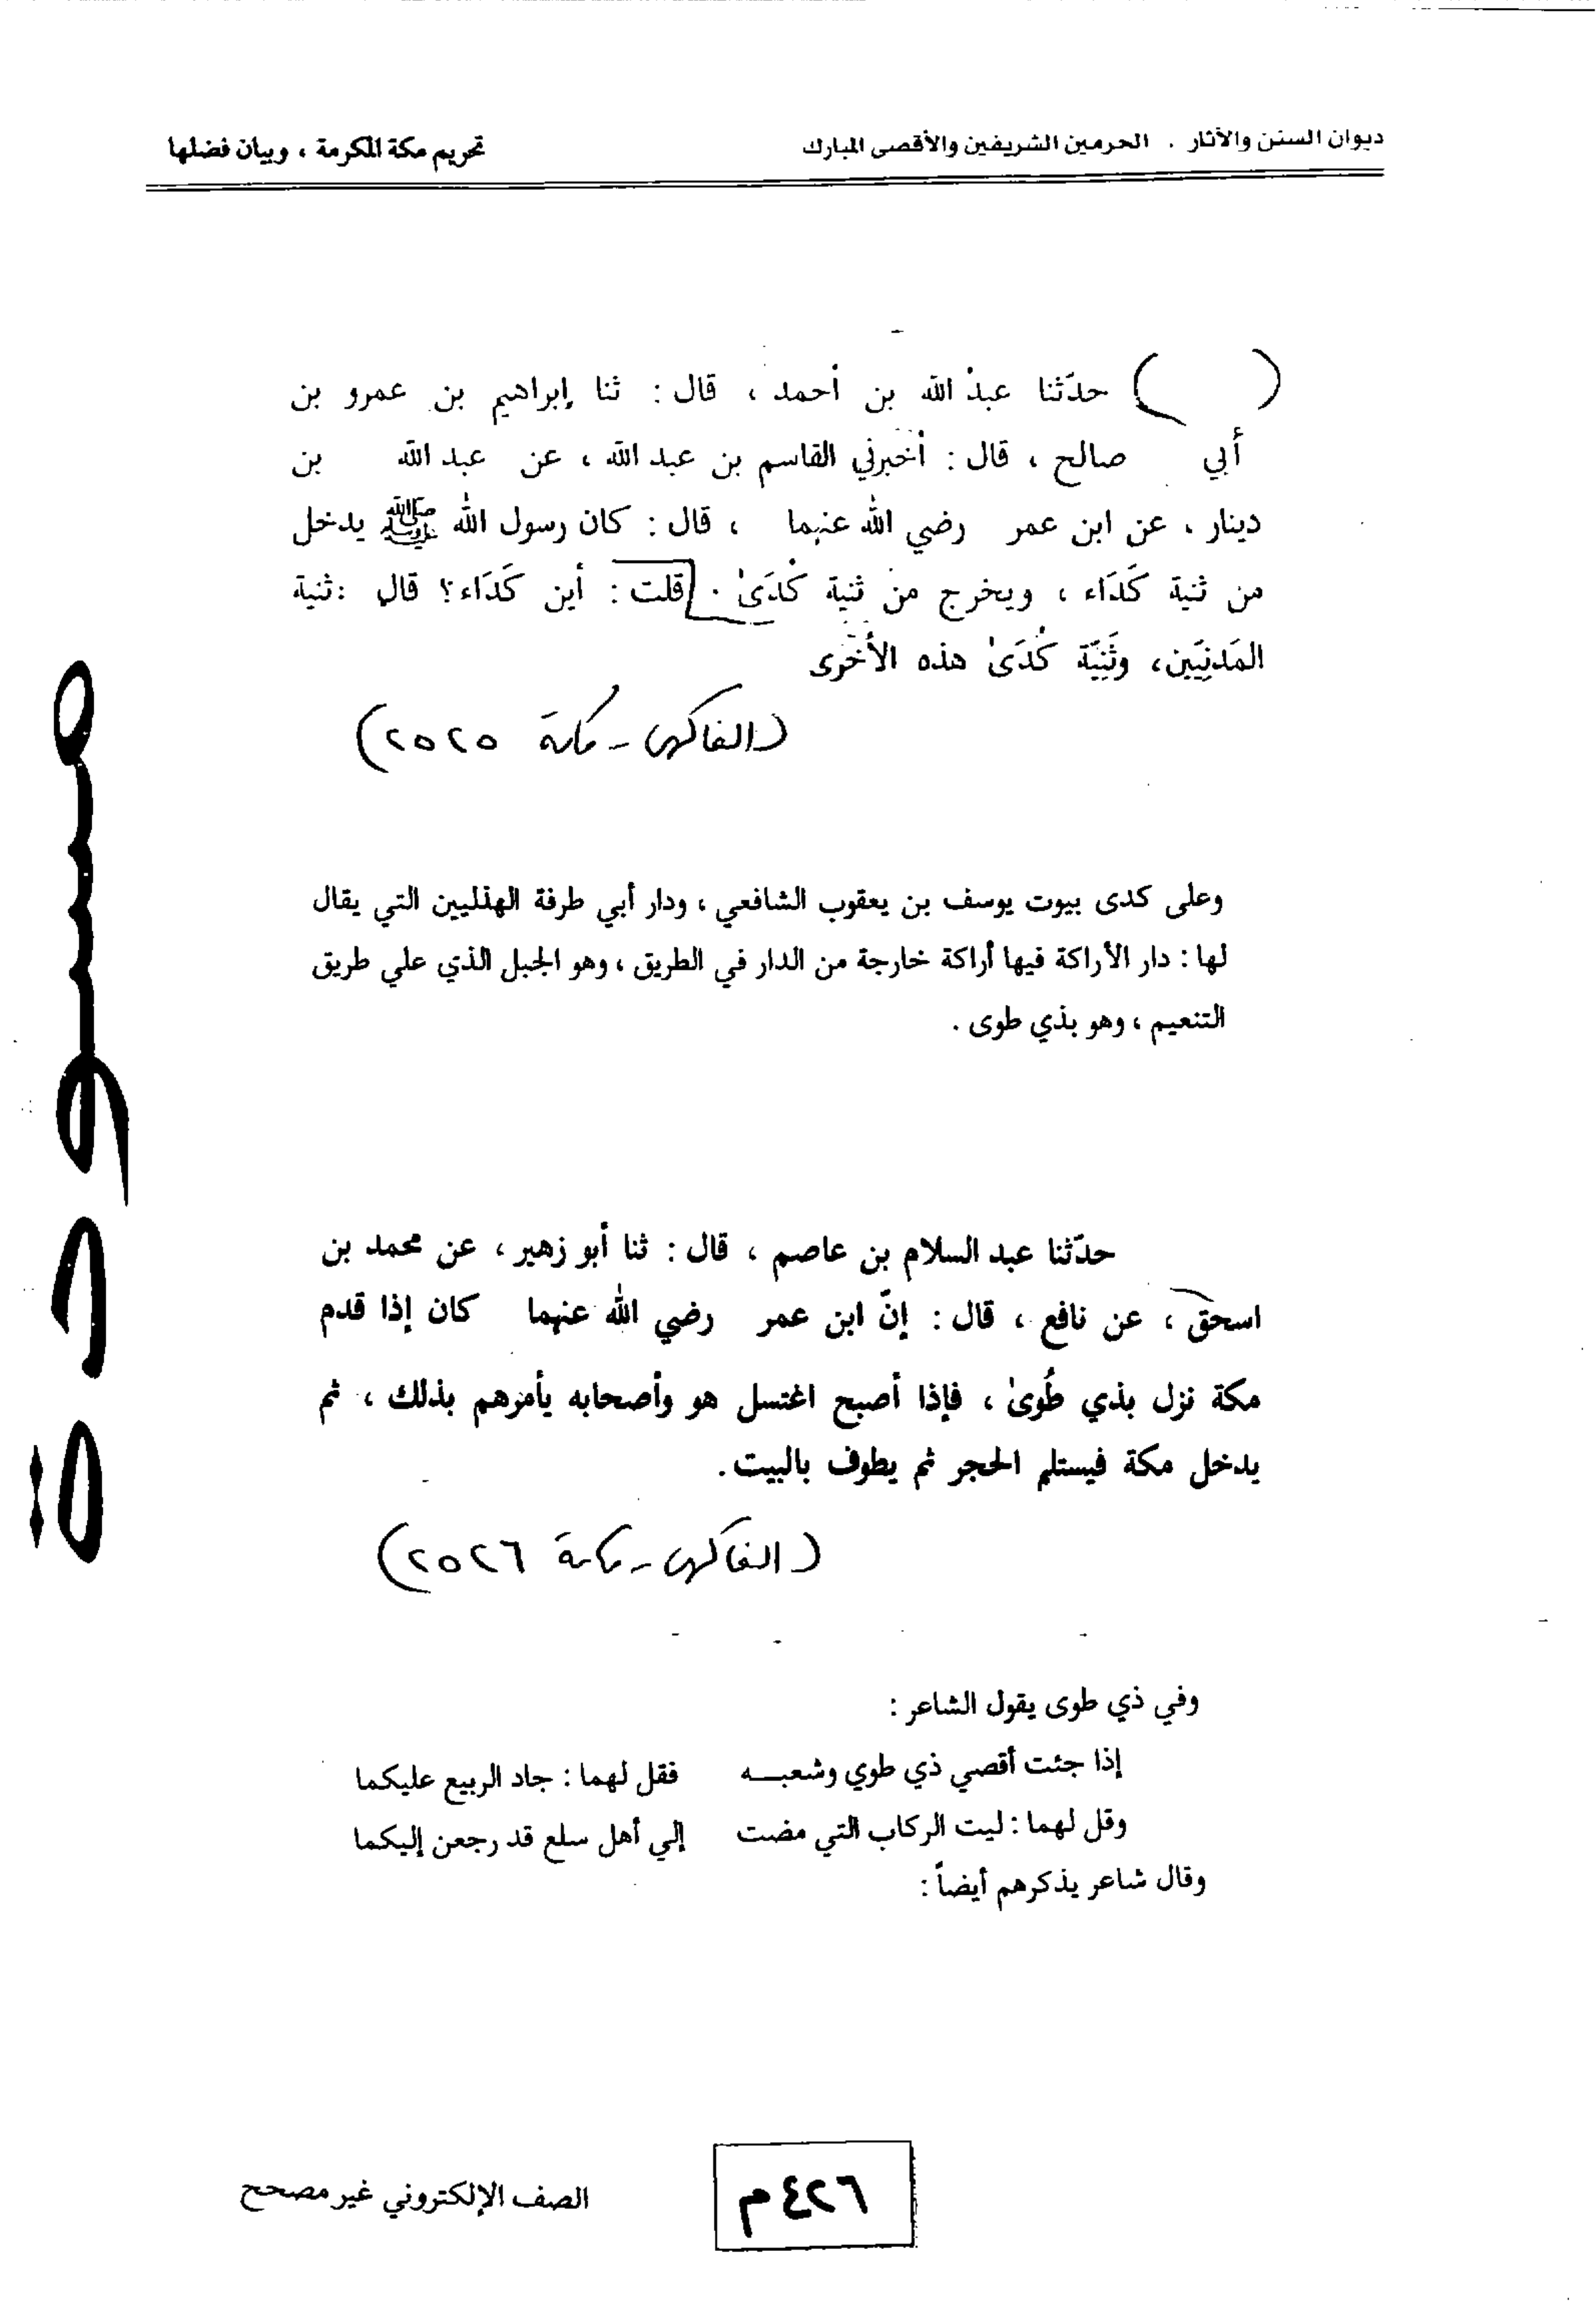 ديوان السنن والآثار . الحرمين الشريفين والأقصى المبارك
تحريم مكة المكرمة ، وبيان فضلها
( ) حدّثنا عبد الله بن أحمد ، قال : ثنا إبراهيم بن عمرو بن
أبي صالح ، قال : أخبرني القاسم بن عبد الله ، عن عبد الله بن
دينار ، عن ابن عمر رضي الله عنهما ، قال : كان رسول الله ﷺ يدخل
من ثنية كَدَاء ، ويخرج من ثنية كُدَىٰ . قلت : أين كَدَاء؟ قال : ثنية
المَدنِيّين، وثَنِيّة كُدَىٰ هذه الأخرى
(الفاكهي - مكة ٢٥٢٥)
وعلى كدى بيوت يوسف بن يعقوب الشافعي ، ودار أبي طرفة الهذليين التي يقال
لها : دار الأراكة فيها أراكة خارجة من الدار في الطريق ، وهو الجبل الذي علي طريق
التنعيم ، وهو بذي طوى .
حدّثنا عبد السلام بن عاصم ، قال : ثنا أبو زهير ، عن محمد بن
اسحق ، عن نافع ، قال : إنّ ابن عمر رضي الله عنهما كان إذا قدم
مكة نزل بذي طُوىٰ ، فإذا أصبح اغتسل هو وأصحابه يأمرهم بذلك ، ثم
يدخل مكة فيستلم الحجر ثم يطوف بالبيت .
(الفاكهي - مكة ٢٥٢٦)
وفي ذي طوى يقول الشاعر :
إذا جئت أقصي ذي طوي وشعبـــه فقل لهما : جاد الربيع عليكما
وقل لهما : ليت الركاب التي مضت إلي أهل سلع قد رجعن إليكما
وقال شاعر يذكرهم أيضاً :
مسودة
٤٢٦ م
الصف الإلكتروني غير مصحح